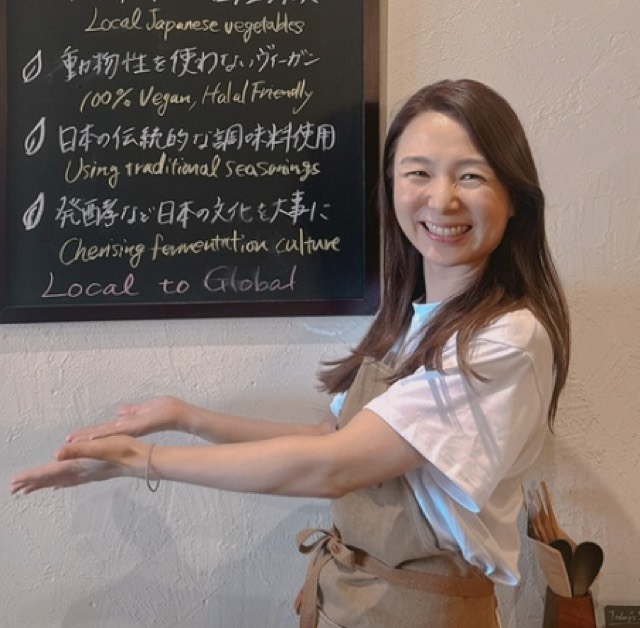 Local Japanese vegetables
動物性を使わないヴィーガン
100% Vegan, Halal Friendly
日本の伝統的な調味料使用
Using traditional seasonings
発酵など日本の文化を大事に
Cherising fermentation culture
Local to Global
Today's